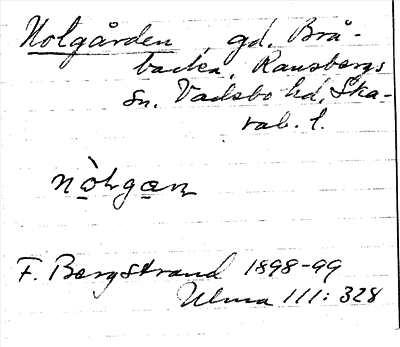 Nolgården, gd. Brå-
backa, Ransbergs
sn. Vadsbo hd, Ska-
rab. l.
nòlgaɳ
F. Bergstrand 1898-99
Ulma 111: 328